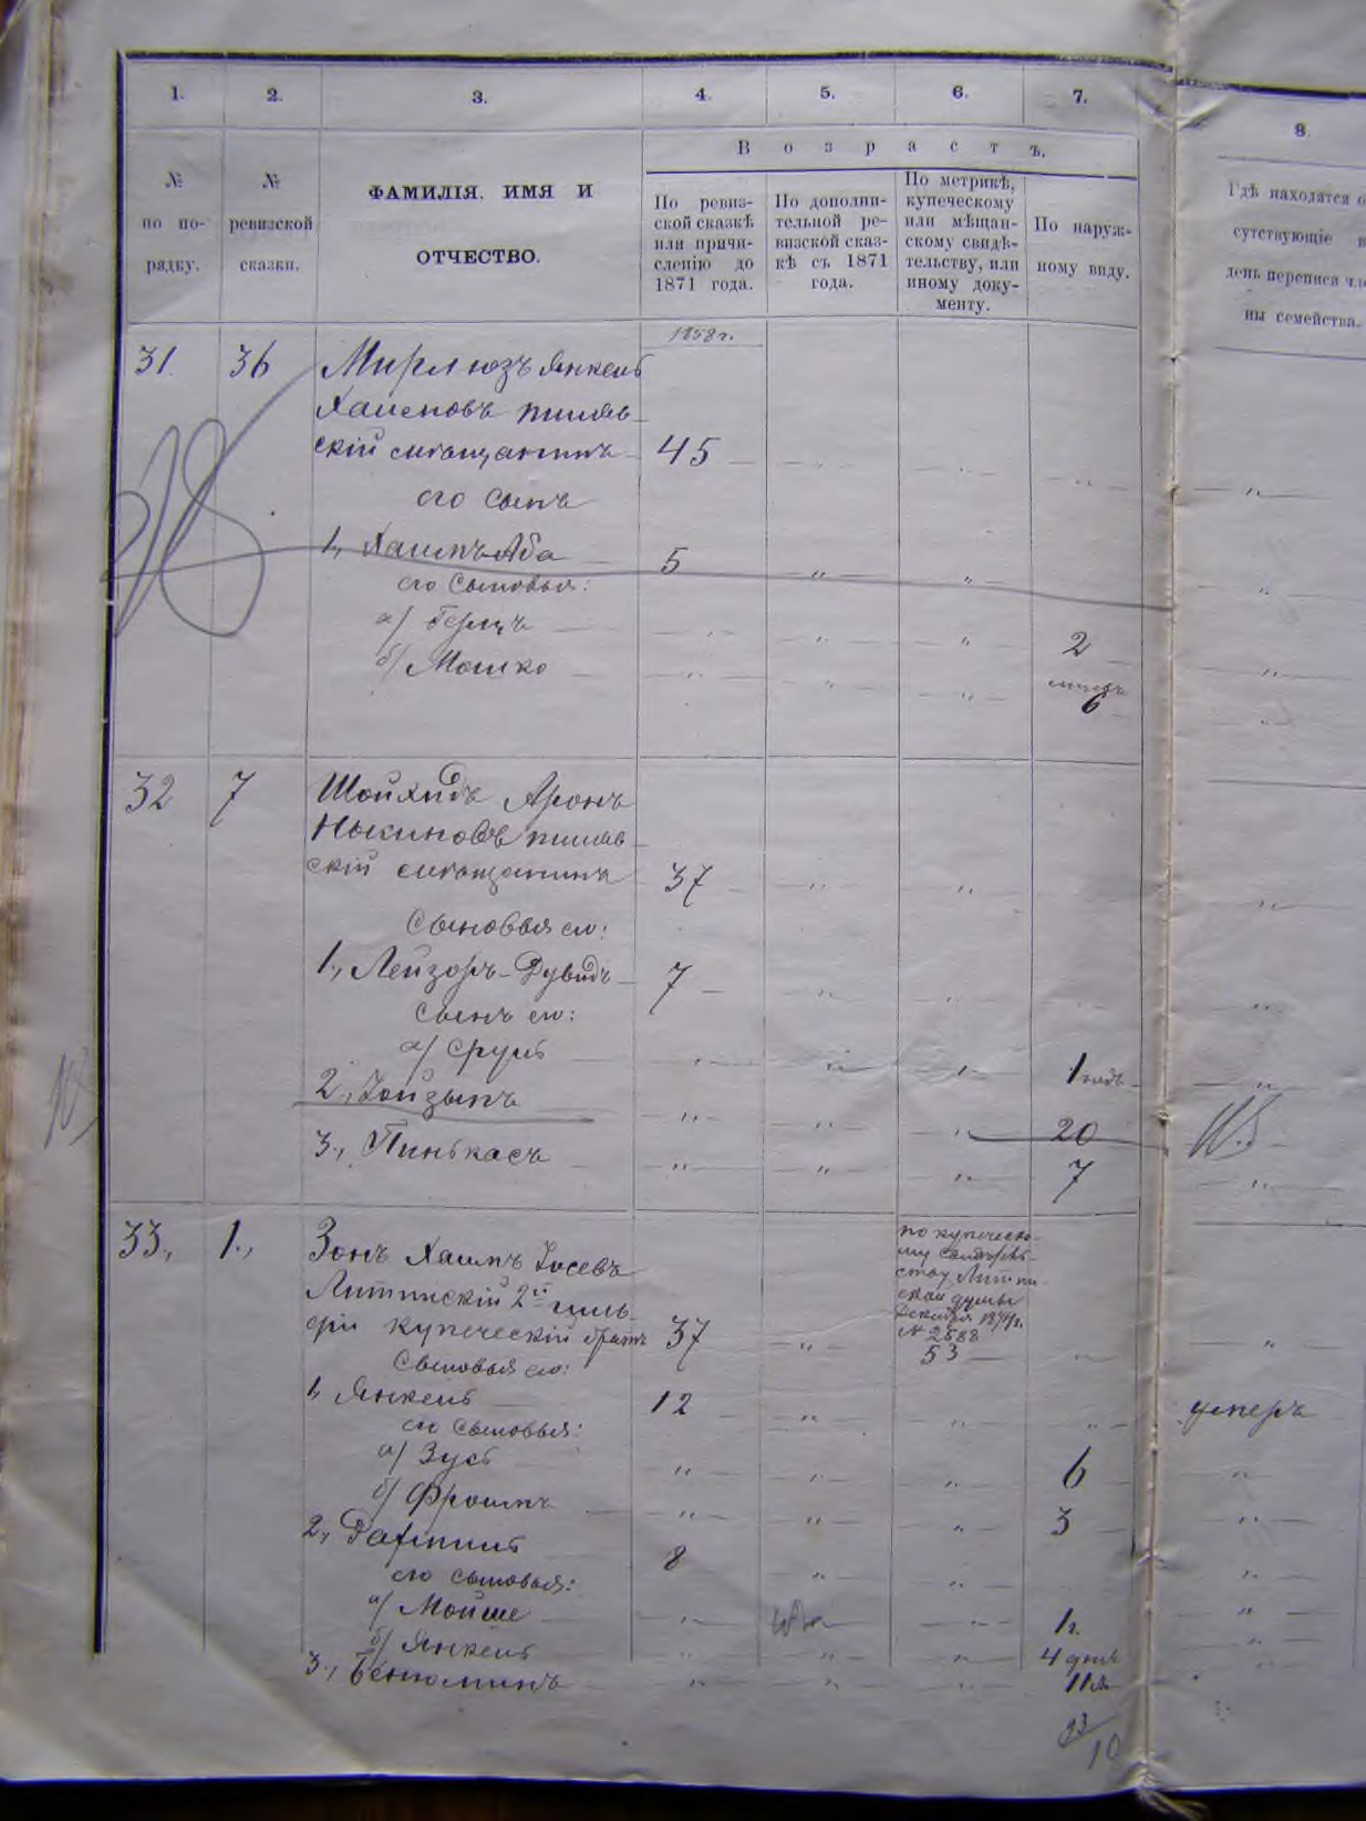 1. 2. 3. 4. 5. 6. 7. 8.
Возрастъ.
№ по порядку.
№ ревизской сказки.
ФАМИЛІЯ, ИМЯ И
ОТЧЕСТВО.
По ревиз-
ской сказкѣ
или причи-
сленію до
1871 года.
По дополни-
тельной ре-
визской сказ-
кѣ съ 1871
года.
По метрикѣ,
купеческому
или мѣщан-
скому свидѣ-
тельству, или
иному доку-
менту.
По наруж-
ному виду.
Гдѣ находятся о
сутствующіе
день переписи чле
ны семейства.
1858 г.
31. 36 Мирлюзъ Янкель
Хаимовъ
скій мѣщанинъ 45
его сынъ
1., Хаимъ Аба 5
его сыновья:
а) Берць 2
б) Мошко
6
32 7 Шойхидъ Аронъ
скій мѣщанинъ 37
Сыновья его:
1., Лейзоръ-Дувидъ 7
Сынъ его:
а) Сруль 1 годъ
2., Іойзыпъ 20
3., Пинькасъ 7
33., 1., Зонъ Хаимъ Іосевъ
Литинскій 2й гиль-
діи купеческій братъ 37
по купеческо-
му свидѣтель-
ству Литин-
ской думы
Декабря
№ 2588
53
Сыновья его:
1, Янкель 12 умеръ
его сыновья:
а) Зусь 6
б) Фроимъ 3
2, 8
его сыновья:
а) Мойше 1 г.
б) Янкель 4 дня
3., Бенюминъ 11